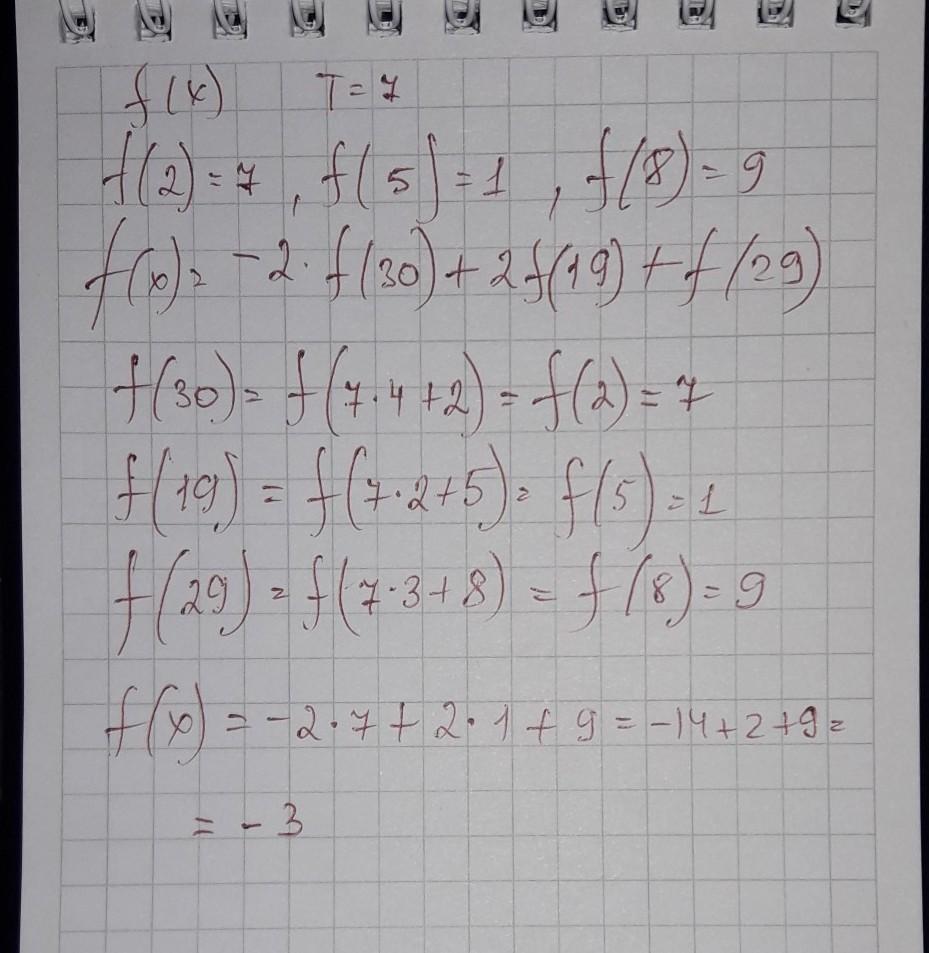 f(x) T=7
f(2)=7, f(5)=1, f(8)=9
f(x)= -2·f(30)+2f(19)+f(29)
f(30)= f(7·4+2)=f(2)=7
f(19)=f(7·2+5)=f(5)=1
f(29)=f(7·3+8)=f(8)=9
f(x)=-2·7+2·1+9=-14+2+9=
=-3